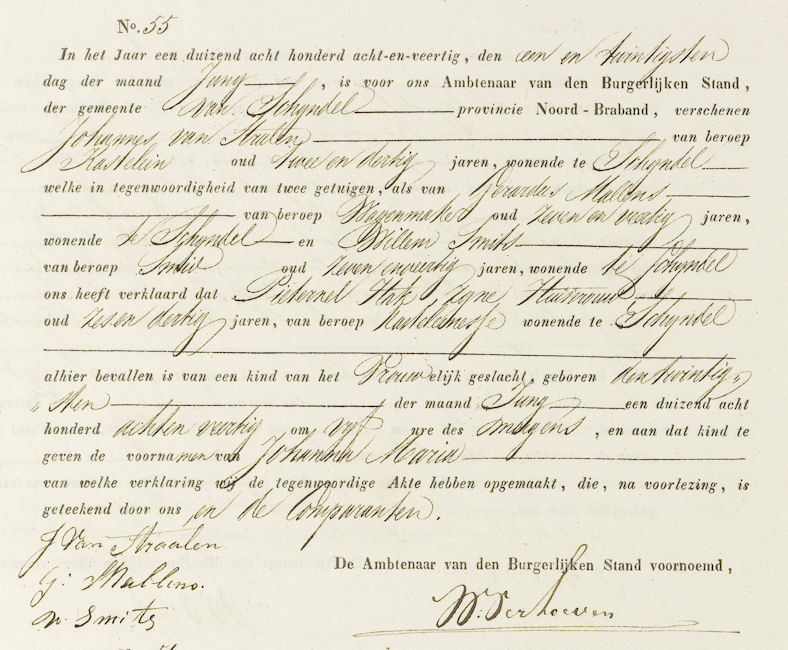 No. 55
In het Jaar een duizend acht honderd acht-en-veertig, den een en twintigsten
dag der maand Juny, is voor ons Ambtenaar van den Burgerlijken Stand,
der gemeente van Schyndel provincie Noord-Braband, verschenen
Johannes van Straalen van beroep
Kastelein oud twee en dertig jaren, wonende te Schyndel
welke in tegenwoordigheid van twee getuigen, als van Gerardus Mallens
van beroep Wagenmaker oud zeven en veertig jaren,
wonende te Schyndel en Willem Smits
van beroep Smid oud zeven en veertig jaren, wonende te Schyndel
ons heeft verklaard dat Pieternel , zyne Huisvrouw
oud zes en dertig jaren, van beroep wonende te Schyndel
alhier bevallen is van een kind van het Vrouwelijk geslacht, geboren den twintig"
"sten der maand Juny een duizend acht
honderd acht en veertig om vyf ure des morgens, en aan dat kind te
geven de voornamen van Johanna Maria
van welke verklaring wij de tegenwoordige Akte hebben opgemaakt, die, na voorlezing, is
geteekend door ons en de Comparanten.
J Van Straalen
G: Mallens.
W. Smits
De Ambtenaar van den Burgerlijken Stand voornoemd,
W. Verhoeven